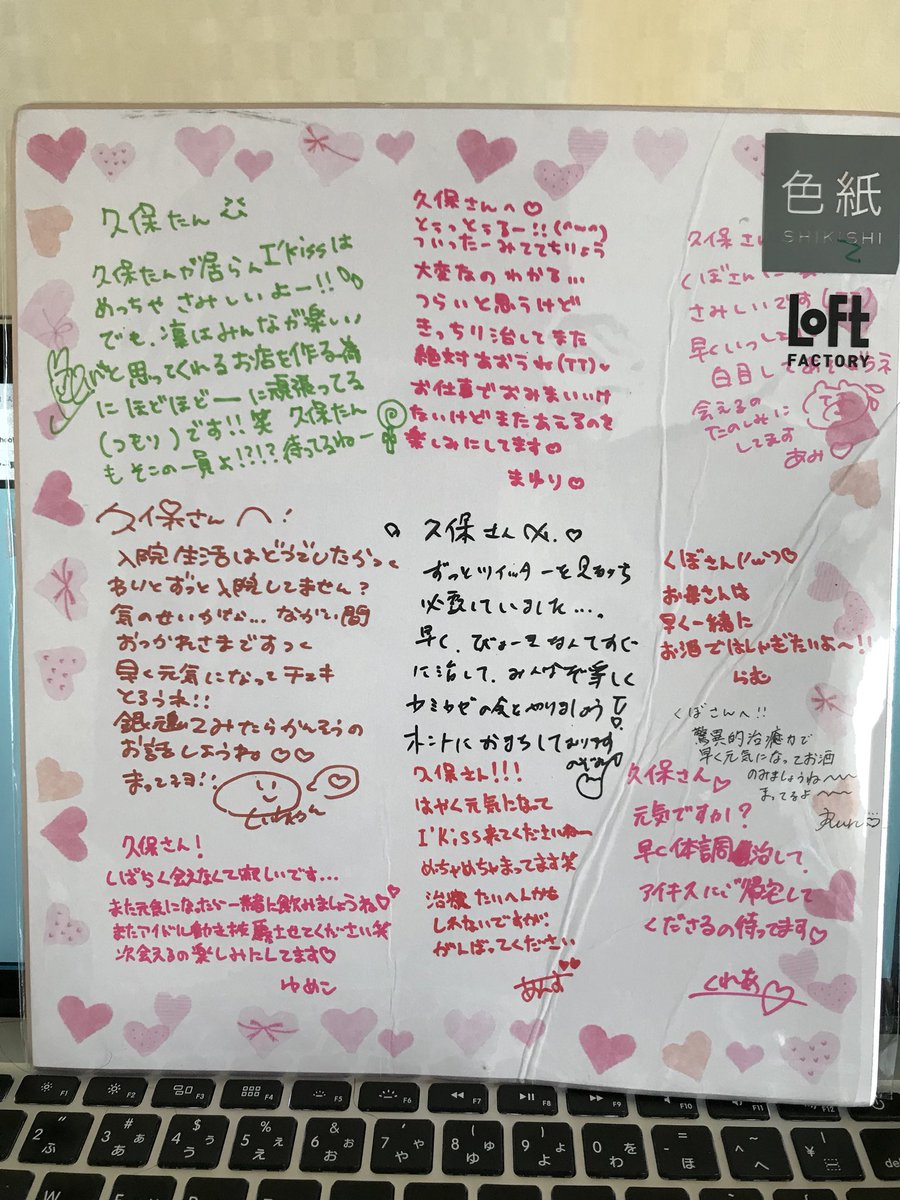 久保たん
久保たんが居らんI'kissは
めっちゃさみしいよー!!
でも、凜はみんなが楽しい
と思ってくれるお店を作る為
にほどほどーに頑張ってる
(つもり)です!!笑 久保たん
もそこの一員よ!?!?待ってるねー
久保さんへ♡
とぅっとぅるー!!(^ω^)
ついったーみててちりょう
大変なのわかる...
つらいと思うけど
きっちり治してまた
絶対あおうね(TT)♡
お仕事でおみまいいけ
ないけどまたあえるのを
楽しみにしてます♡
まゆり♡
色紙
SHIKISHI
LOFT
FACTORY
久保さ
くぼさんに
さみしいです
早くいっしょ
白目し
会えるの
たのしみに
してます
あみ♡
久保さんへ!
入院生活はどうでしたかっ
わいとずっと入院してません?
気のせいかな... ながい間
おつかれさまですっ
早く元気になってチェキ
とろうね!!
銀魂みたらかんそうの
お話しようね♡♡
まってるヨ!!
久保さんへ.♡
ずっとツイッターを見るっち
必要していました...。
早く、びょーきなんてすぐに
に治して、みんなで楽しく
カミカゼの会とやりましょう
ホントにおまちしております
のぞみ
くぼさん('ω')♡
お母さんは
早く一緒に
お酒ではしゃぎたいよ〜!!
らむ
くぼさんへ!!
驚異的治癒力で
早く元気になってお酒
のみましょうね〜〜
まってるよ〜〜
久保さん!
しばらく会えなくて寂しいです...
また元気になったら一緒に飲みましょうね♡♡
またアイドル動画披露させてください笑
次会えるの楽しみにしてます♡
ゆめこ
久保さん!!!
はやく元気になって
I'Kiss来てくださいねー
めちゃめちゃまってます笑
治療たいへんかも
しれないですが
がんばってください
あんず♡♡
久保さん♡
元気ですか?
早く体調治して、
アイキスにご帰宅して
くださるの待ってます♡
くれあ♡
F1
F2
F3
F4
F5
F6
F7
F8
F9
F10
2 ふ
3 # あ
4 $ う
5 % え
6 & お
7 ' や
8 ( ゆ
9 ) よ
0 を わ
- = ほ
^ ~ へ
¥ |
del
W
E
R
T
Y
U
I
O
P